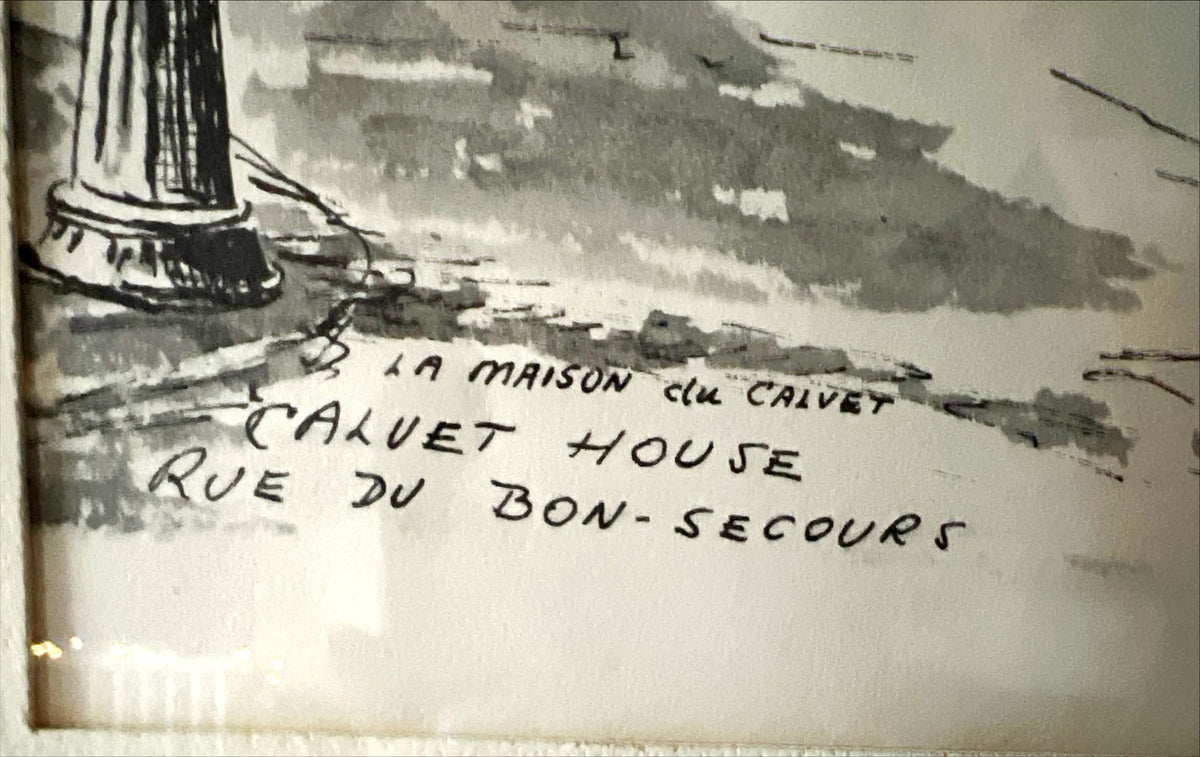 LA MAISON du CALVET
CALVET HOUSE
RUE DU BON-SECOURS